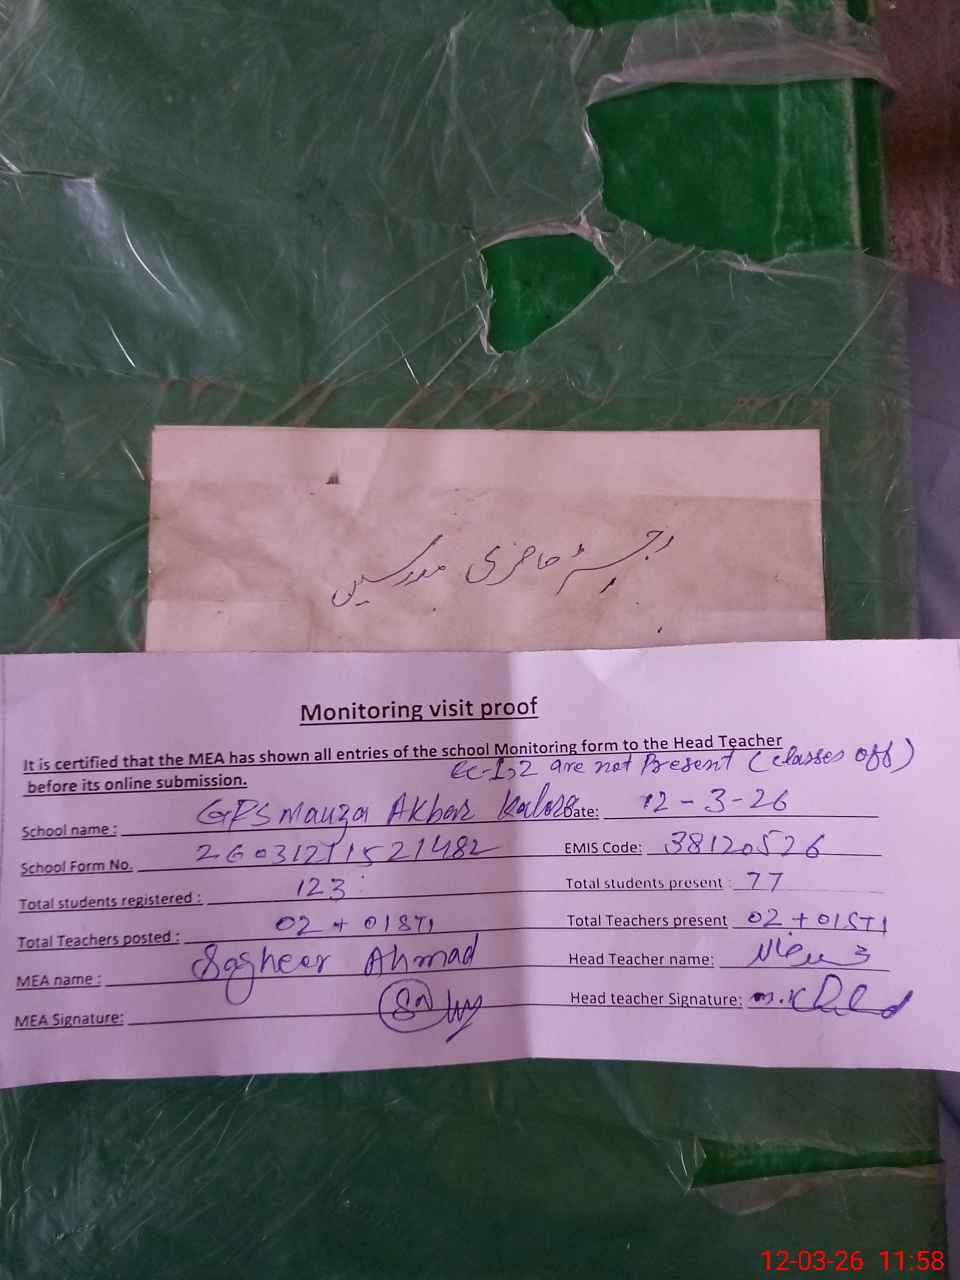 رجسٹر حاضری مدرسین
Monitoring visit proof
It is certified that the MEA has shown all entries of the school Monitoring form to the Head Teacher
before its online submission. Ec-1,2 are not Present (classes off)
School name : GPS Mauza Akbar Date: 12-3-26
School Form No. EMIS Code: 38120526
Total students registered : 123 Total students present : 77
Total Teachers posted : 02 + 01 STI Total Teachers present 02 + 01 STI
MEA name : Sagheer Ahmad Head Teacher name:
MEA Signature: Head teacher Signature:
12-03-26 11:58